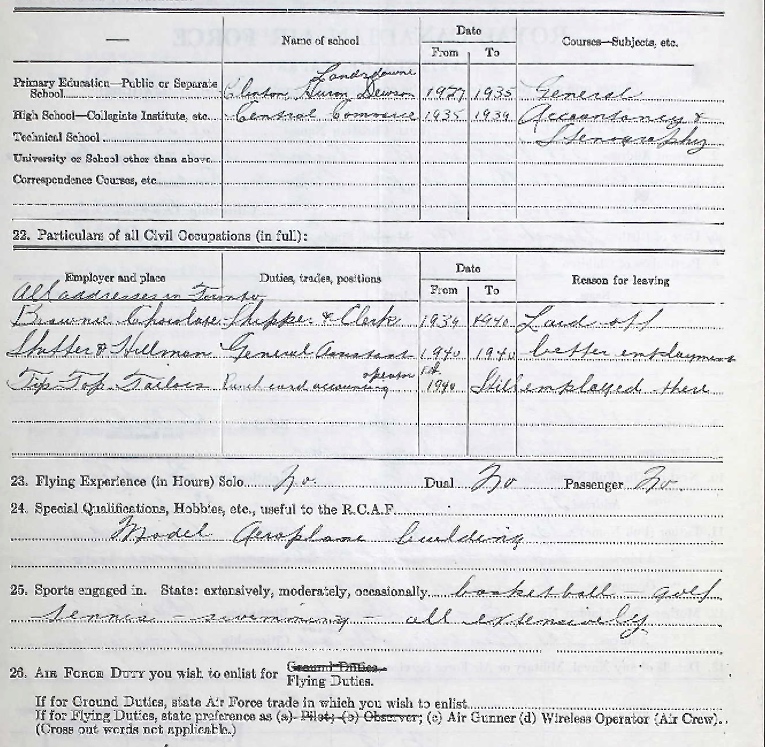 Date
— Name of school From To Courses—Subjects, etc.
Lansdowne
Primary Education—Public or Separate
School Clinton, Huron, Dewson 1927 1935 General
High School—Collegiate Institute, etc. Central Commerce 1935 1939 Accountancy &
Technical School Stenography
University or School other than above
Correspondence Courses, etc
22. Particulars of all Civil Occupations (in full):
Date
Employer and place Duties, trades, positions From To Reason for leaving
All addresses in Toronto
Brownie Chocolate Shipper & Clerk 1939 1940 Laid off
& Hillman General Assistant 1940 1940 better employment
operator
Tip Top Tailors card accounting 1940 Still employed there
23. Flying Experience (in Hours) Solo No. Dual No Passenger No.
24. Special Qualifications, Hobbies, etc., useful to the R.C.A.F.
Model Aeroplane building
25. Sports engaged in. State: extensively, moderately, occasionally basketball – golf
tennis – swimming – all extensively
26. AIR FORCE DUTY you wish to enlist for Ground Duties.
Flying Duties.
If for Ground Duties, state Air Force trade in which you wish to enlist
If for Flying Duties, state preference as (a) Pilot; (b) Observer; (c) Air Gunner (d) Wireless Operator (Air Crew).
(Cross out words not applicable.)